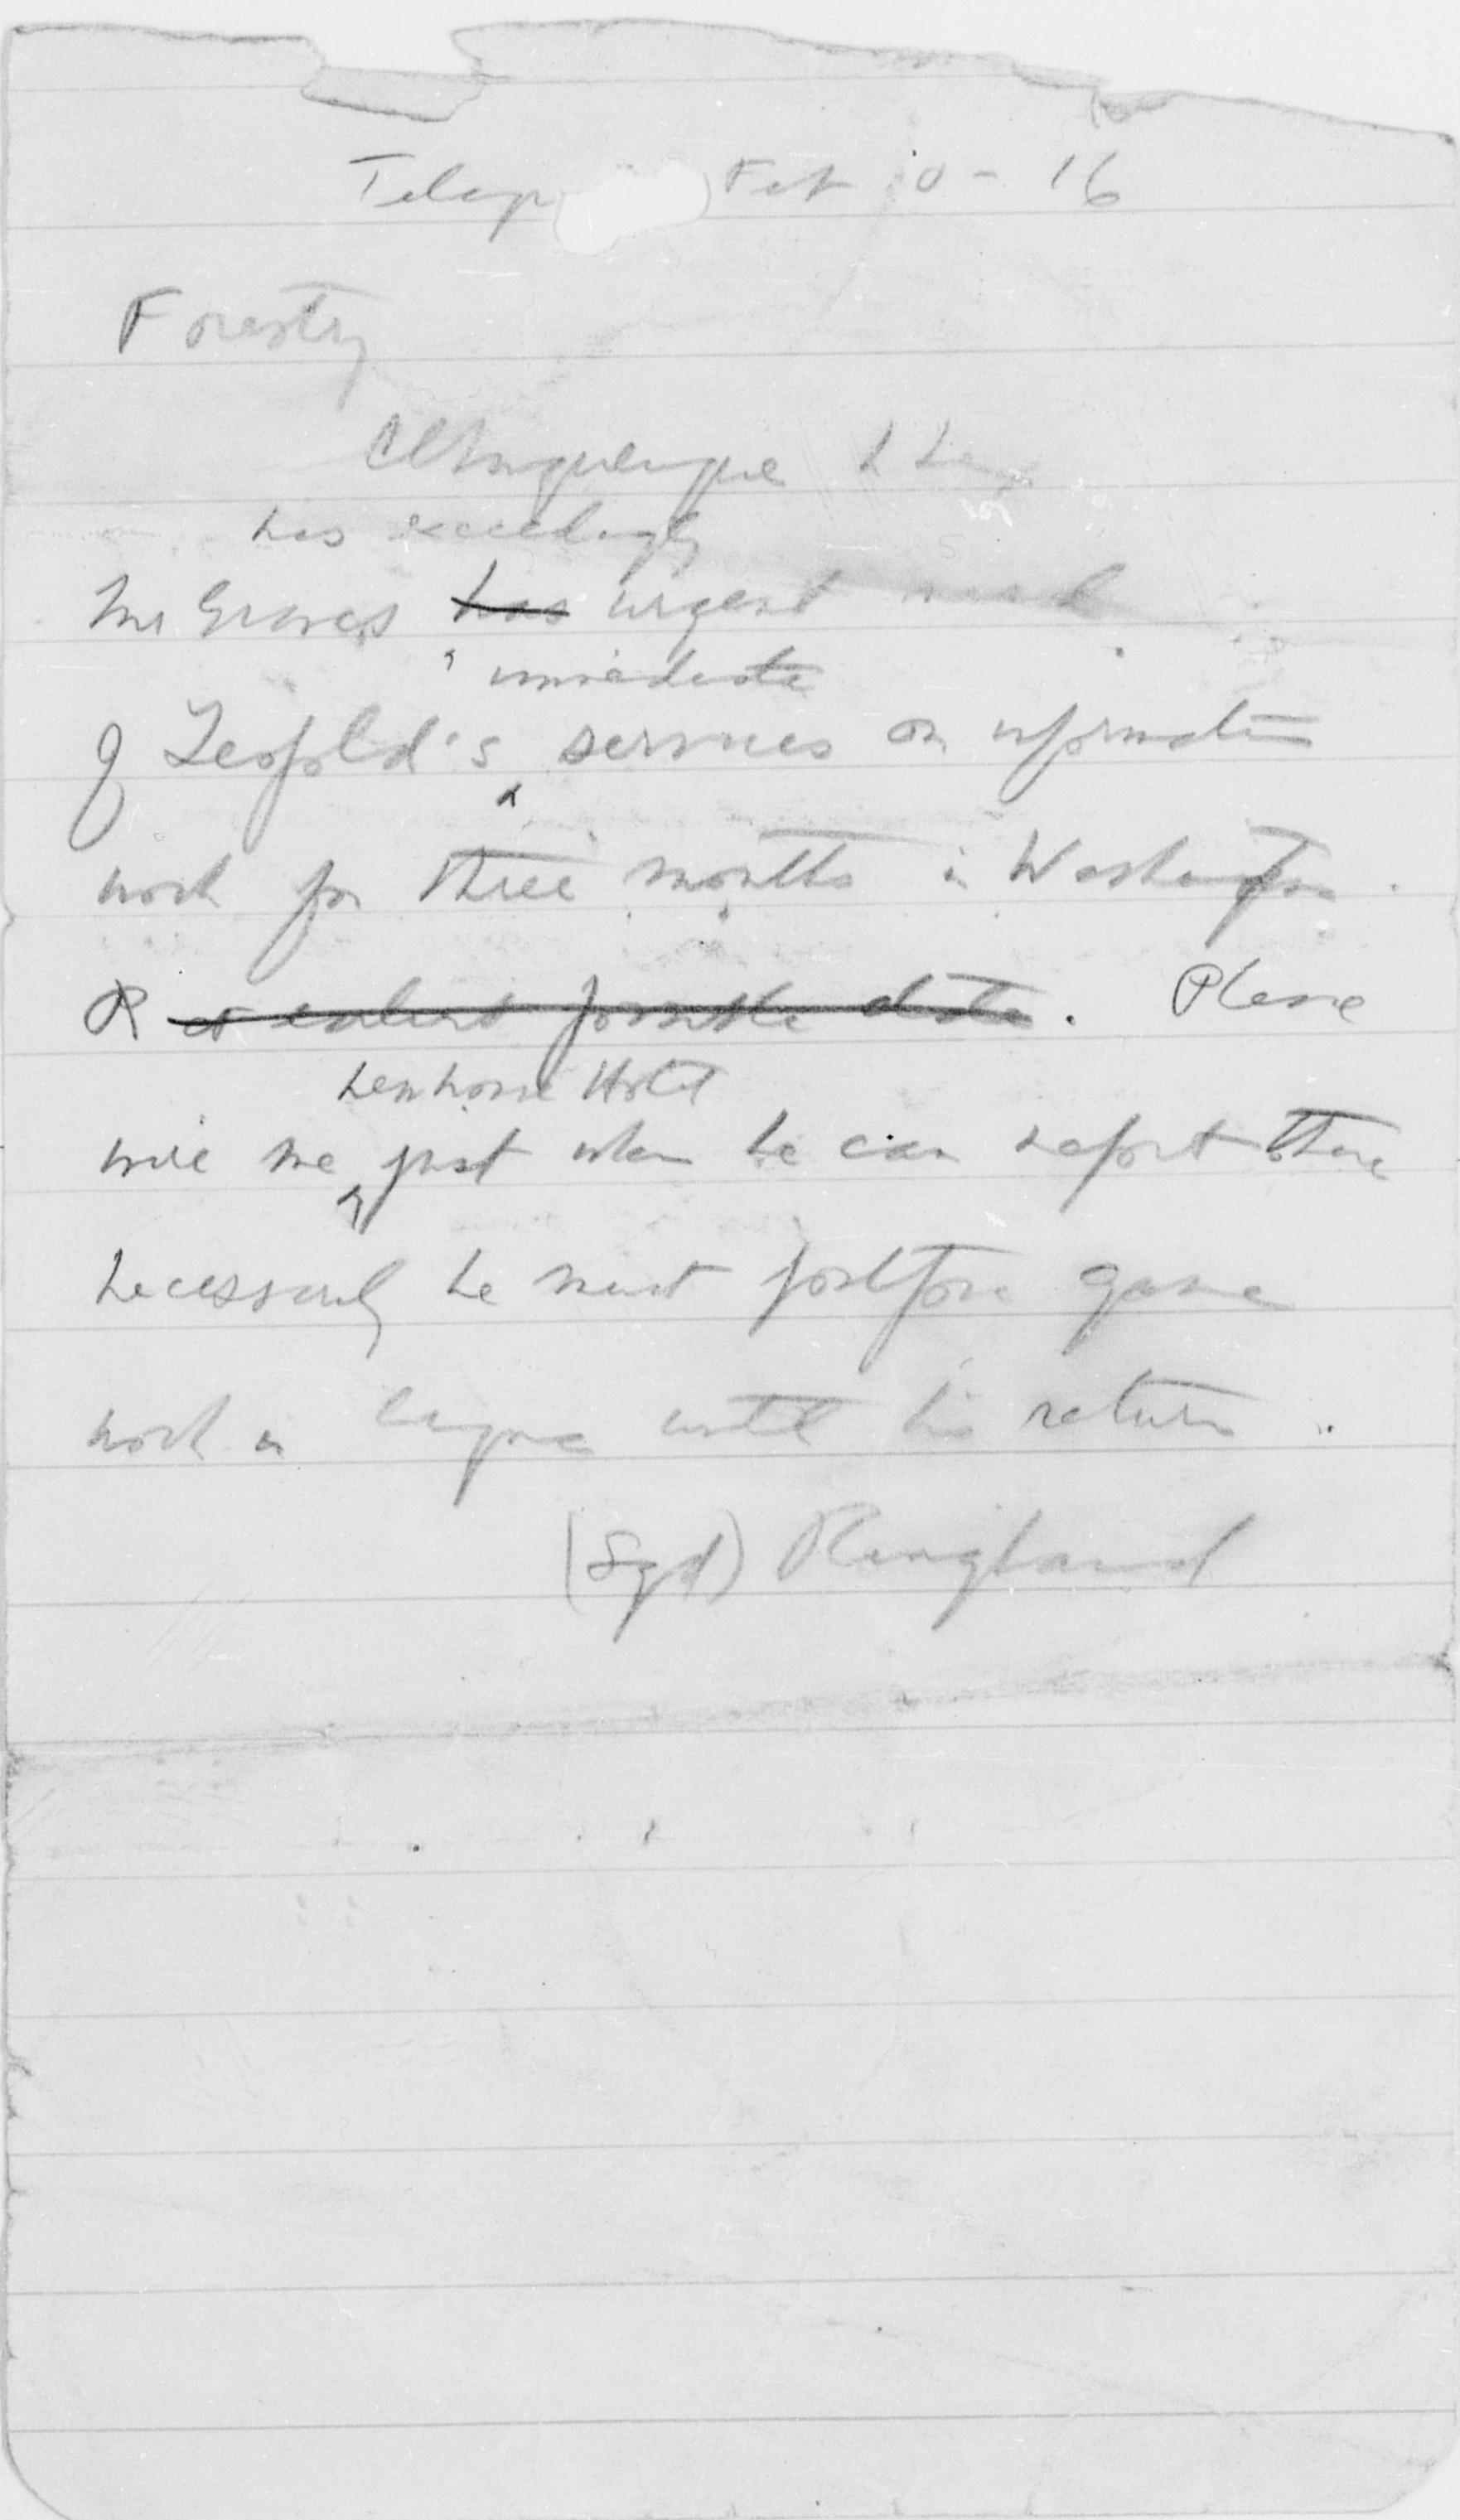 Telegr Feb 10 - 16
Forestry
Albuquerque N Mex
has exceedingly
Mr Graves has urgent need
immediate
of Leopold's services on information
work for three months in Washington.
at earliest possible date. Please
wire me just when he can report there
necessarily he must postpone game
work until his return.
(Sgd) Ringland